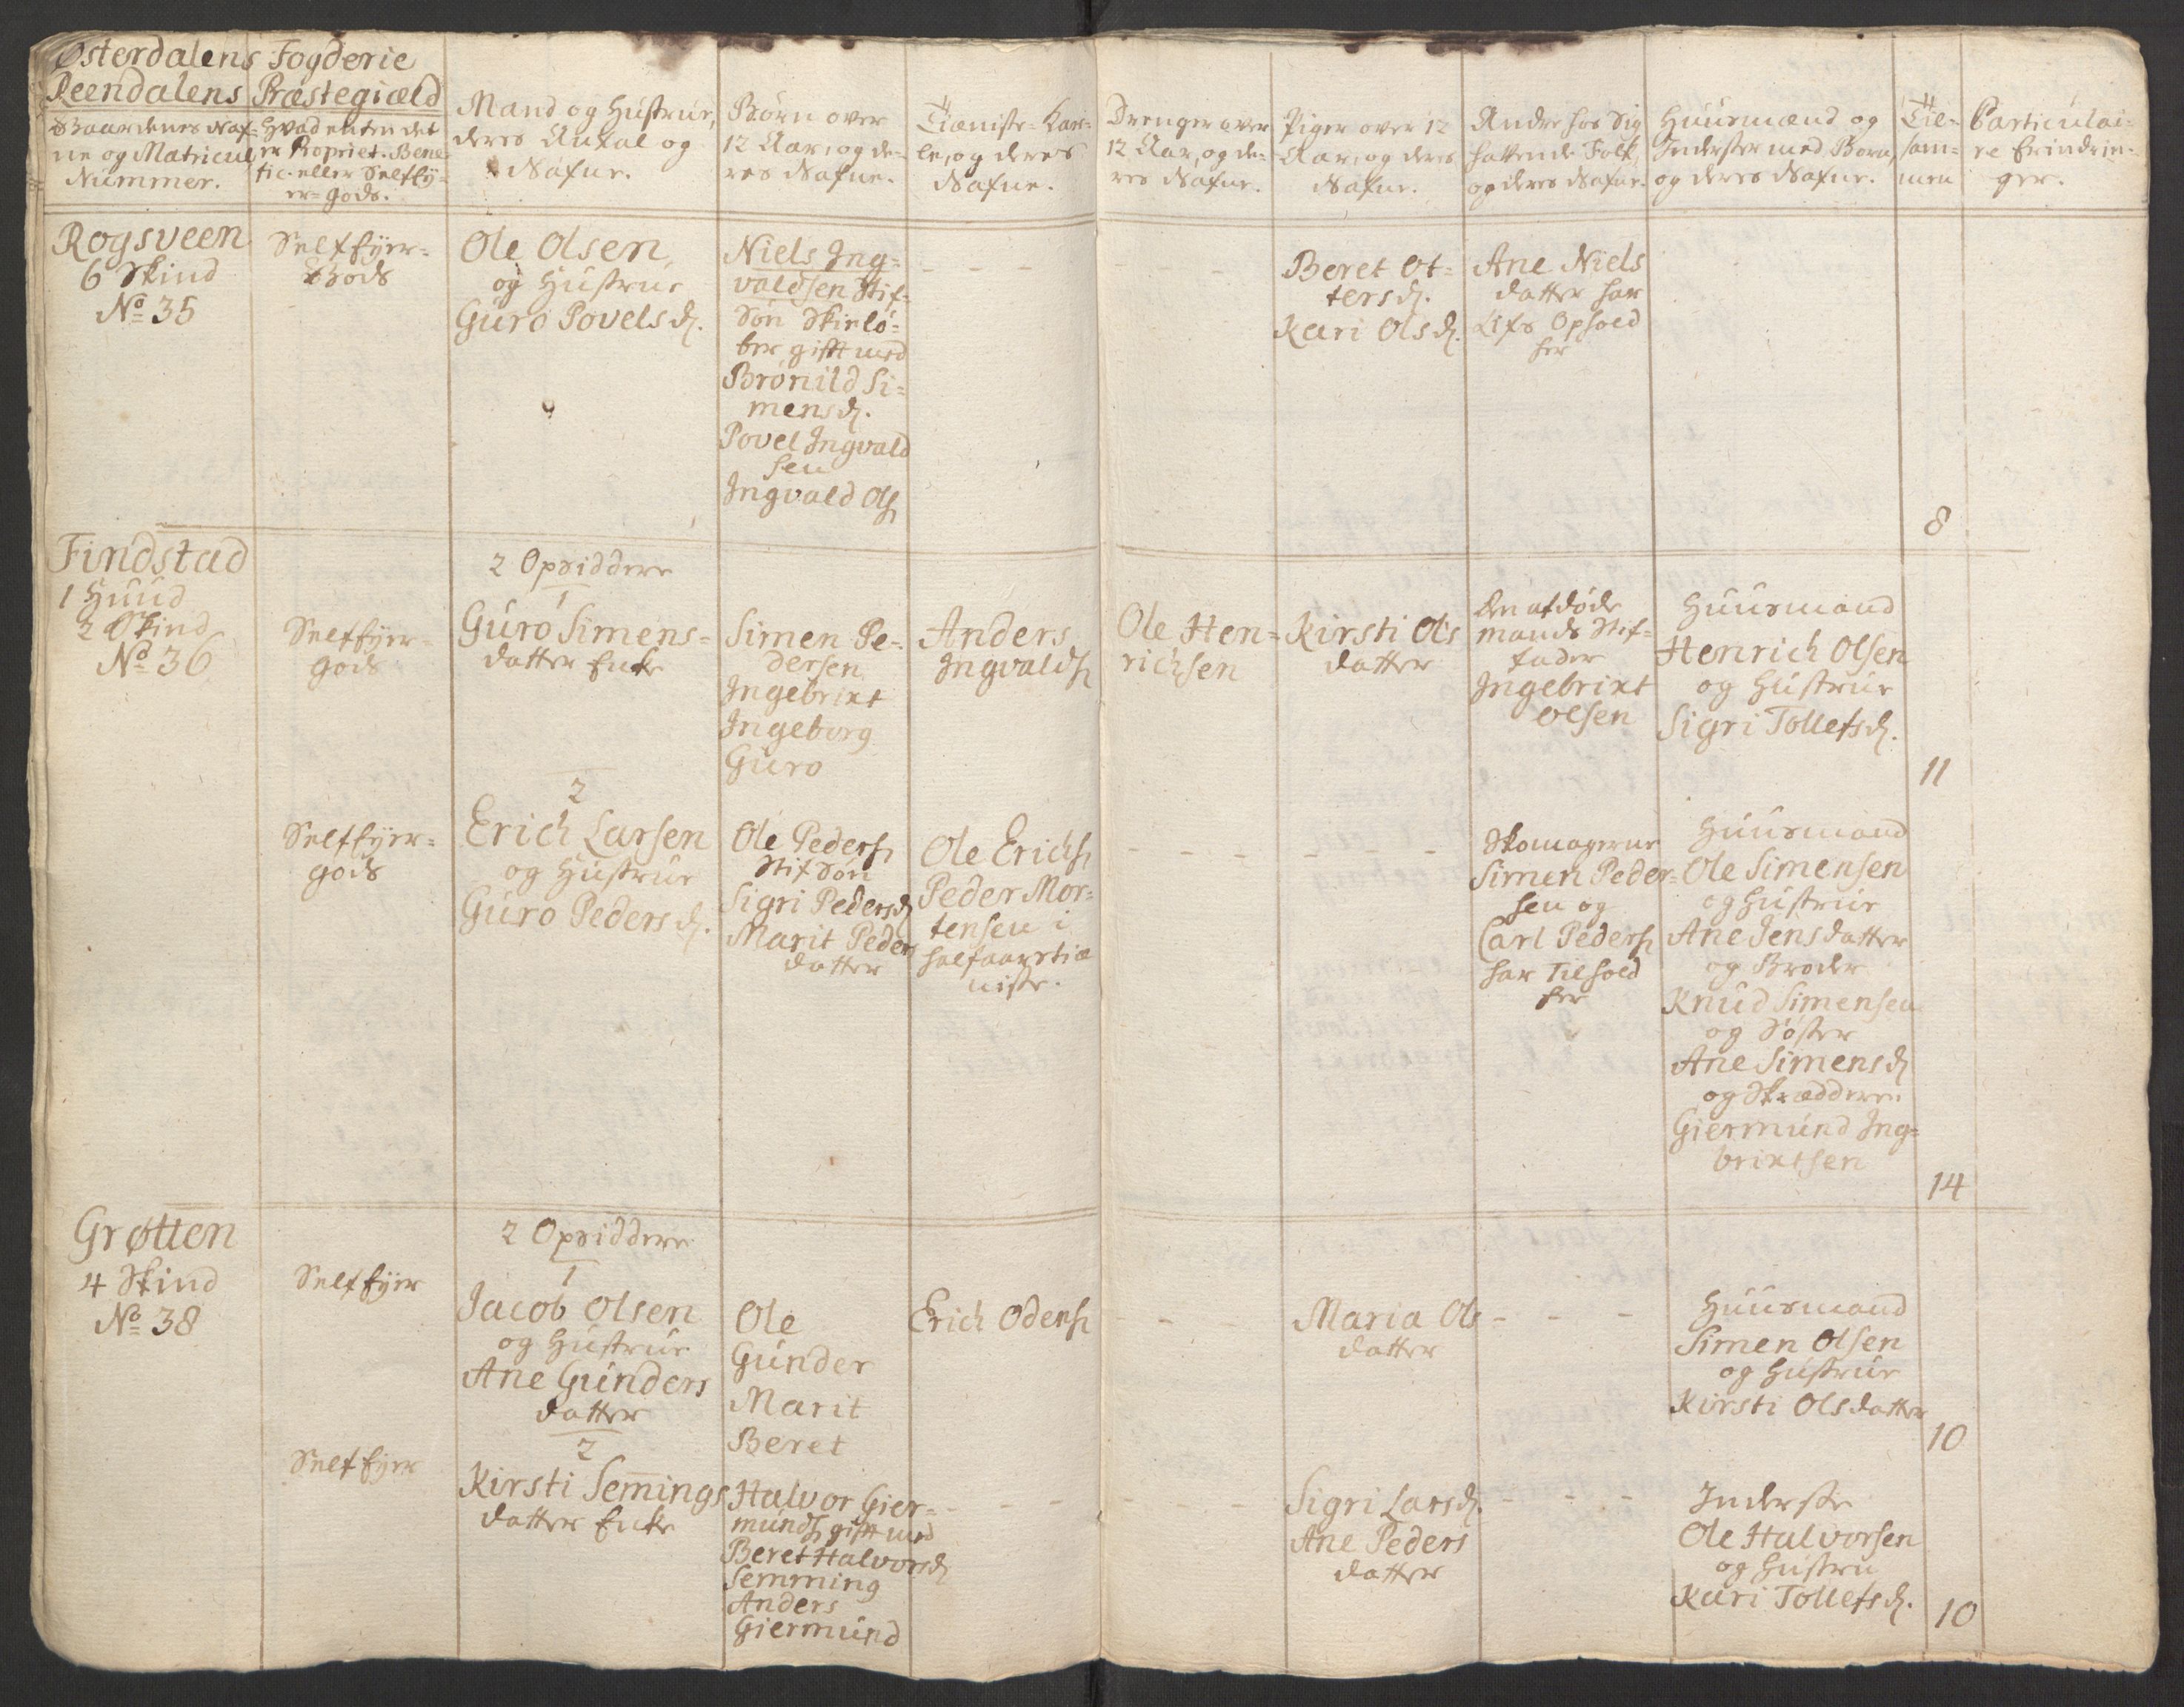 Østerdalens Fogderie
Reendalens Præstegiæld
Gaardenes Naf-
ne og Matricul
Nummer.
Hvad enten det
er Propriet. Bene-
fic. eller Selfey-
er-gods.
Mand og Hustrue,
deres Antal og
Nafne.
Børn over
12 Aar, og de-
res Nafne.
Tieniste-Kar-
le, og deres
Nafne.
Drenger over
12 Aar, og de-
res Nafne.
Piger over 12
Aar, og deres
Nafne.
Andre hos sig
hafvende Folk,
og deres Nafne.
Huusmænd og
Inderster med Børn,
og deres Nafne.
Til-
sam-
men
Particulai-
re Erindrin-
ger.
Rogsveen
6 Skind
No 35
Selfeyer-
Gods
Ole Olsen
og Hustrue
Guro Povelsd.
Niels Ing-
valdsen Stif-
Søn Skielø-
ber gift med
Brønild Si-
mensd.
Povel Ingvald
sen
Ingvald Ols
- - -
- - -
Beret Ot-
tersd.
Kari Olsd.
Ane Niels
datter har
Ophold
her
8
Findstad
1 Huud
2 Skind
No 36
Selfeyer-
gods
2 Opsiddere
1
Guro Simens-
datter Enke
Simen Pe-
dersen
Ingebrixt
Ingeborg
Guro
Anders
Ingvalds
Ole Hen-
richsen
Kirsti Ols
datter
Den afdøde
mands Stif-
fader
Ingebrixt
Olsen
Huusmand
Henrich Olsen
og Hustrue
Sigri Tollefsd.
11
Selfeyer-
gods
2
Erich Larsen
og Hustrue
Guro Pedersd.
Ole Peders
Stif Søn
Sigri Pedersd
Marit Peders
datter
Ole Erichs
Peder Mor-
tensen i
halfaarstie
niste.
- - - - - - -
Skomagerne
Simen Peder-
sen og
Carl Peders
har Tilhold
her
Huusmand
Ole Simensen
og Hustrue
Ane Jensdatter
og Broder
Knud Simensen
og Søster
Ane Simensd
og Skrædderen
Giermund Ing-
brixtsen
14
Grøtten
4 Skind
No 38
Selfeyer
2 Opsiddere
1
Jacob Olsen
og Hustrue
Ane Gunders
datter
Ole
Gunder
Marit
Beret
Erich Odens
- - -
Maria Ols
datter
- - -
Huusmand
Simen Olsen
og Hustrue
Kirsti Olsdatter
10
Selfeyer
2
Kirsti Semings
datter Enke
Halvor Gier-
munds gift med
Beret Halvorsd
Semming
Anders
Giermund
- - -
- - -
Sigri Larsd.
Ane Peders
datter
- - -
Inderste
Ole Halvorsen
og Hustru
Kari Tollefsd.
10